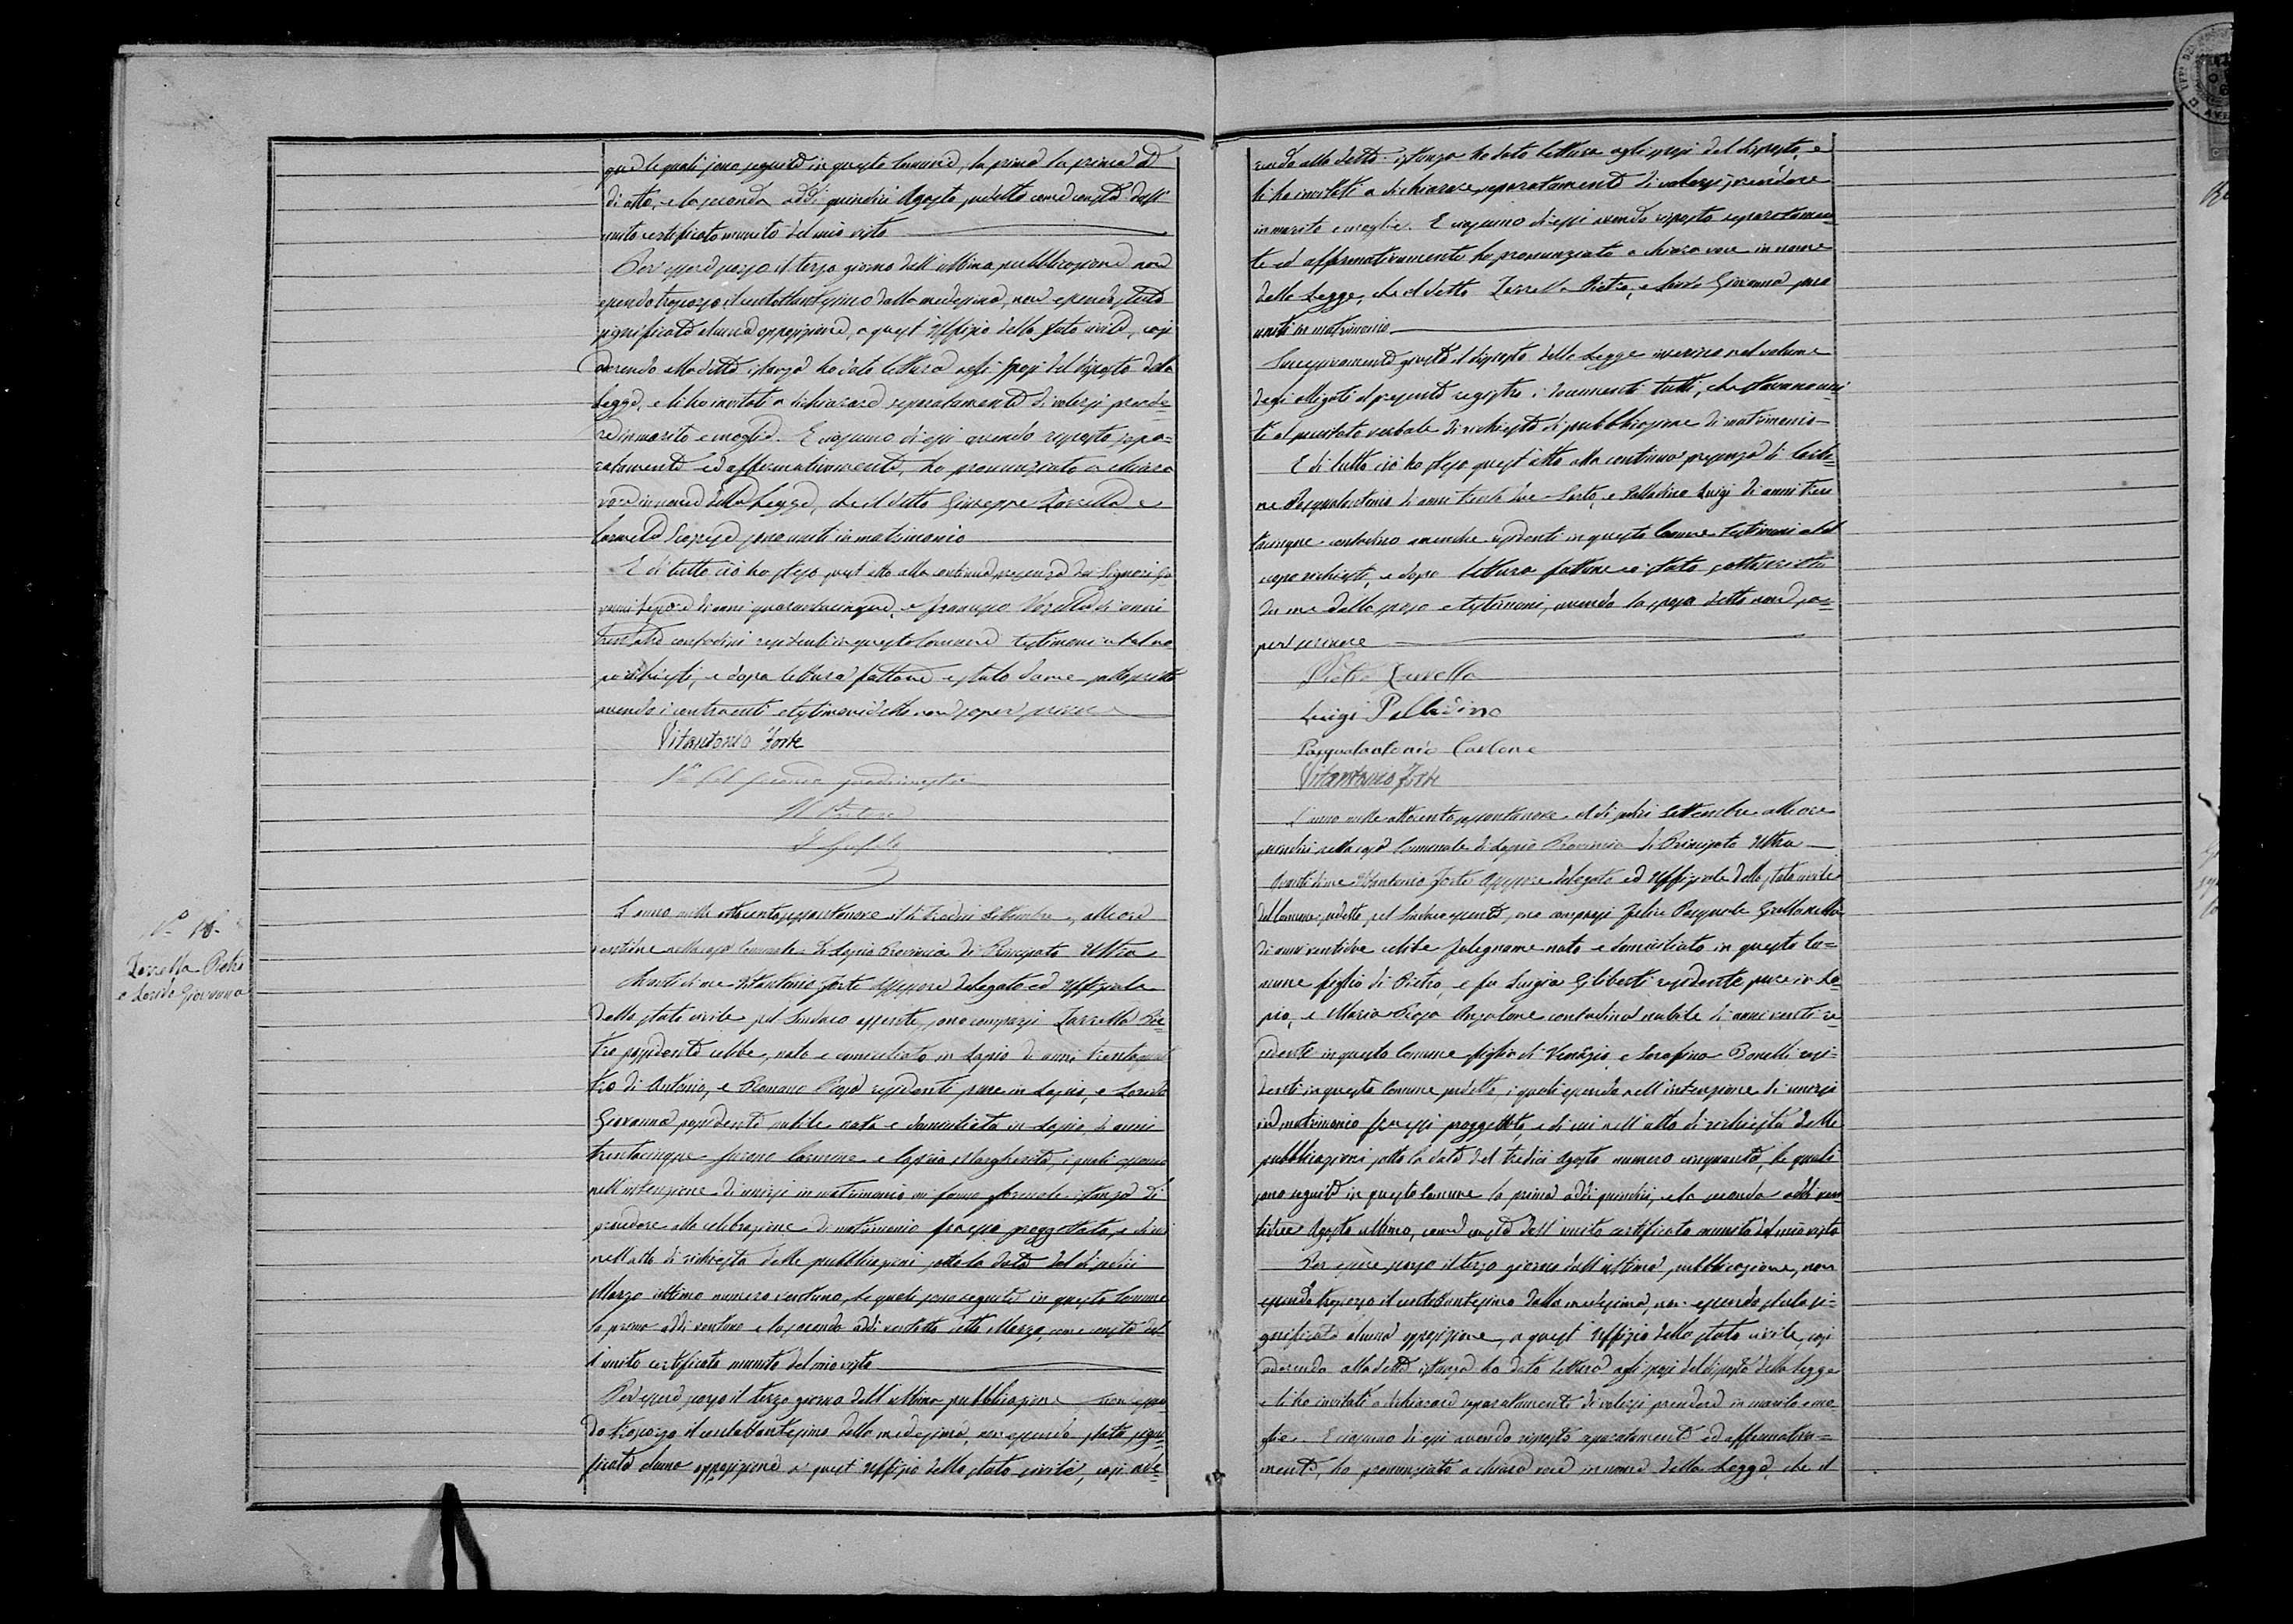 que le quali sono seguite in questo Comune, la prima la prima di
di atto, e la seconda addì quindici Agosto sudetto come consta dall'
unito certificato munito del mio visto
Per essere scorso il terzo giorno dell'ultima pubblicazione non
essendo trascorso il centottantesimo dalla medesima, non essendo stata
significata alcuna opposizione, a quest'Uffizio dello stato civile, così
aderendo alla detta istanza ho dato lettura agli sposi del disposto dalla
Legge, e li ho invitati a dichiarare separatamente di volersi prende=
re in marito e moglie. E ciascuno di essi avendo risposto sepa=
ratamente ed affermativamente, ho pronunziato a chiara
voce in nome della Legge, che il detto Giuseppe Zarrella e
Carmela sono uniti in matrimonio
E di tutto ciò ho steso quest'atto alla continua presenza dei Signori
di anni quarantacinque, e Francesco di anni
contadini residenti in questo Comune testimoni a tal uo=
po richiesti, e dopo lettura fattane è stato da me sottoscritto
avendo i contraenti e testimoni detto non saper scrivere
Vitantonio Forte
Vo pel secondo quadrimestre
Il Pretore
N. 18.
Zarrella Pietro
e Loreto Giovanna
L'anno mille ottocento settantanove il dì tredici Settembre, alle ore
ventidue nella casa Comunale di Lapio Provincia di Principato Ultra
Avanti di me Vitantonio Forte Assessore delegato ed Uffiziale
dello stato civile pel Sindaco assente, sono comparsi Zarrella Pie=
tro possidente celibe, nato e domiciliato in Lapio di anni trentaquat
tro di Antonio, e Romano Rosa residenti pure in Lapio, e Loreto
Giovanna possidente nubile nata e domiciliata in Lapio, di anni
trentacinque furono Carmine e Margherita, i quali essendo
nell'intenzione di unirsi in matrimonio mi fanno formale istanza di
procedere alla celebrazione di matrimonio fra essi proggettato, e di cui
nell'atto di richiesta delle pubblicazioni sotto la data del dì sedici
Marzo ultimo numero ventuno, le quali sono seguite in questo Comune
la prima addì e la seconda addì detto Marzo, come consta dal=
l'unito certificato munito del mio visto
Per essere scorso il terzo giorno dell'ultima pubblicazione non essen
do trascorso il centottantesimo dalla medesima, non essendo stata signi=
ficata alcuna opposizione a quest'Uffizio dello stato civile, così ade=
rendo alla detta istanza ho dato lettura agli sposi del disposto, e
li ho invitati a dichiarare separatamente di volersi prendere
in marito e moglie. E ciascuno di essi avendo risposto separatamen=
te ed affermativamente ho pronunziato a chiara voce in nome
della Legge, che il detto Zarrella Pietro, e Loreto Giovanna sono
uniti in matrimonio
Successivamente giusta il disposto della Legge inserisco nel volume
degli alligati al presente registro i documenti tutti, che stavano uni
ti al precitato verbale di richiesta di pubblicazione di matrimonio
E di tutto ciò ho steso quest'atto alla continua presenza di Carbo=
ne Pasqualantonio di anni trentadue Sarto, e Palladino Luigi di anni tren
tacinque contadino amendue residenti in questo Comune testimoni a tal
uopo richiesti, e dopo lettura fattane è stato sottoscritto
da me dallo sposo e testimoni, avendo la sposa detto non sa=
per scrivere
Pietro Zarrella
Luigi Palladino
Pasqualantonio Carbone
Vitantonio Forte
L'anno mille ottocento settantanove il dì sedici Settembre alle ore
quindici nella casa Comunale di Lapio Provincia di Principato Ultra
Avanti di me Vitantonio Forte Assessore delegato ed Uffiziale dello stato civile
del Comune sudetto pel Sindaco assente, sono comparsi Felice Pasquale
di anni ventidue celibe falegname nato e domiciliato in questo Co=
mune figlio di Pietro, e fu Luigia Giliberti residente pure in La=
pio, e Maria Rosa Anzalone contadina nubile di anni venti re
sidente in questo Comune figlia di Venanzio e Serafina Bonelli resi=
denti in questo Comune sudetto, i quali essendo nell'intenzione di unirsi
in matrimonio fra essi proggettato, e di cui nell'atto di richiesta delle
pubblicazioni sotto la data del tredici Agosto numero cinquanta, le quali
sono seguite in questo Comune la prima addì quindici, e la seconda addì ven
Agosto ultimo, come consta dall'unito certificato munito del mio visto
Per essere scorso il terzo giorno dall'ultima pubblicazione, non
essendo trascorso il centottantesimo dalla medesima, non essendo stata si=
gnificata alcuna opposizione, a quest'Uffizio dello stato civile, così
aderendo alla detta istanza ho dato lettura agli sposi del disposto della Legge
e li ho invitati a dichiarare separatamente di volersi prendere in marito e mo=
glie. E ciascuno di essi avendo risposto separatamente ed affermativa=
mente, ho pronunziato a chiara voce in nome della Legge, che il